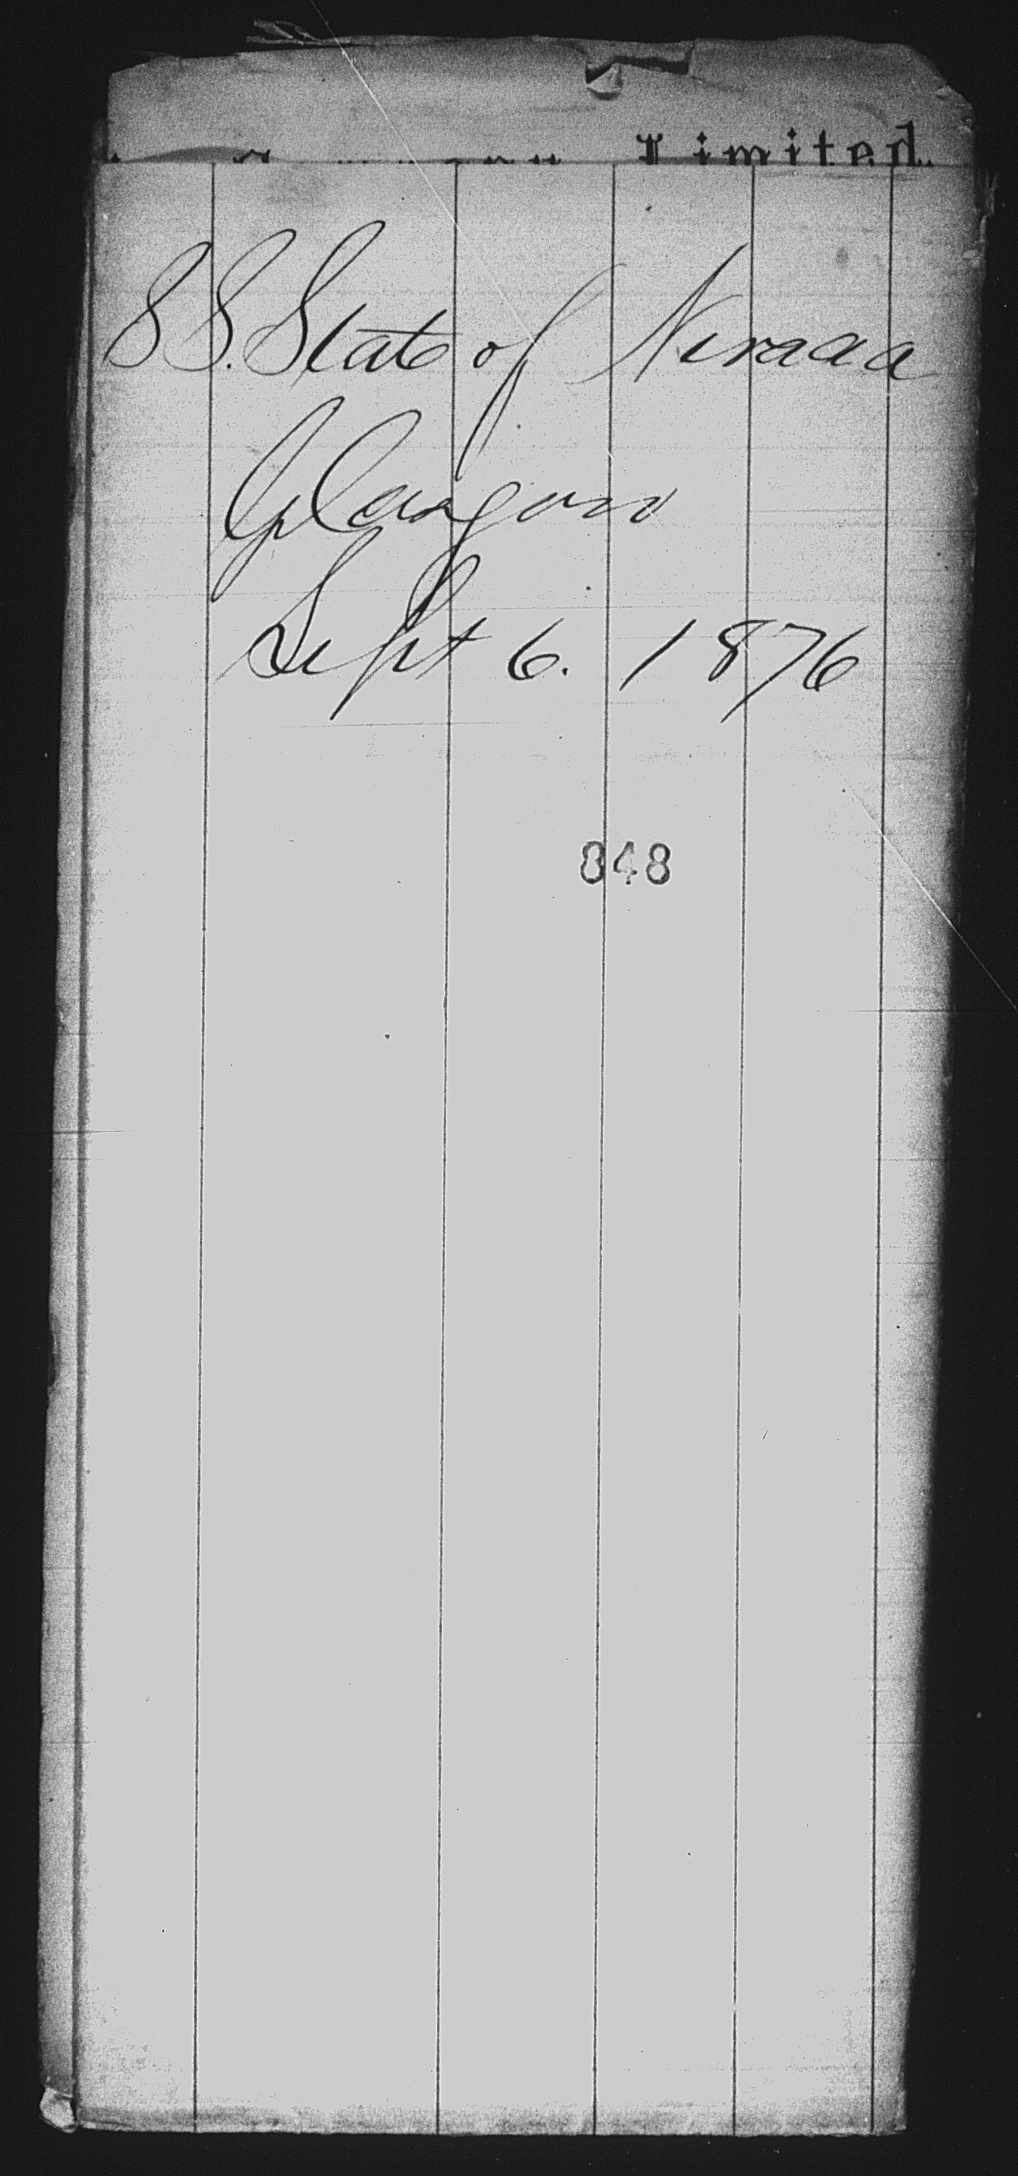 Limited.
S S. State of Nevada
Glasgow
Sept 6. 1876
848